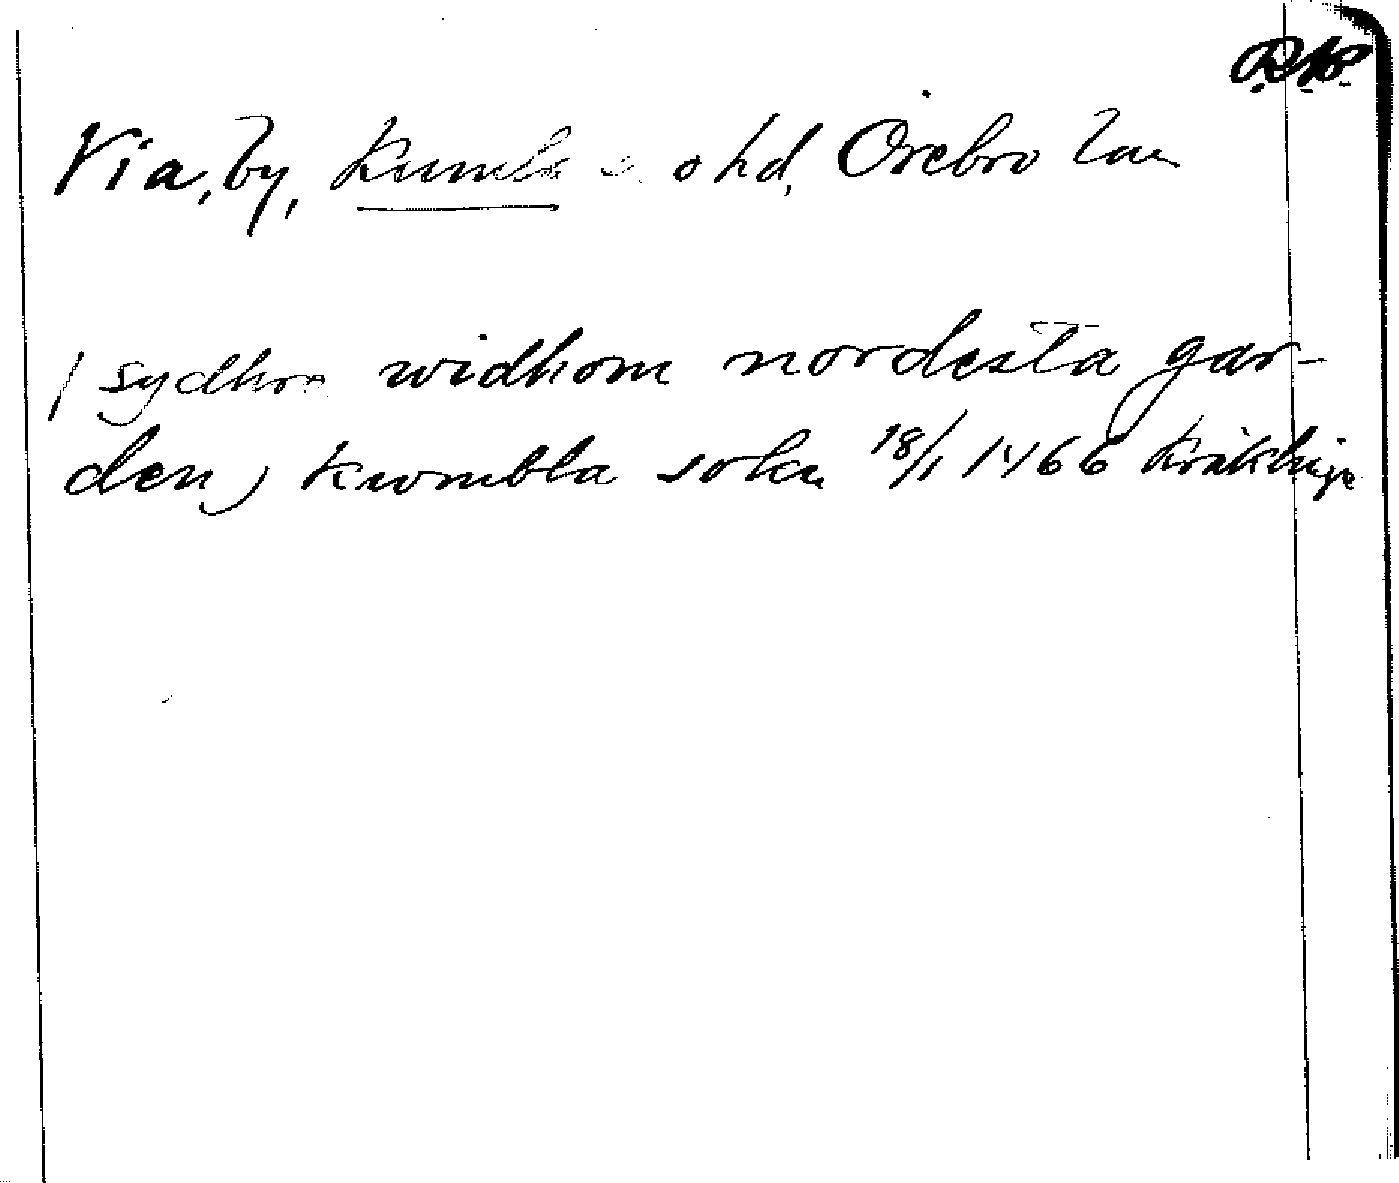 Via, by, Kumla s. o hd, Örebro län
i sydhra widhom nordesta gar-
den, kwmbla sokn 18/1 1466